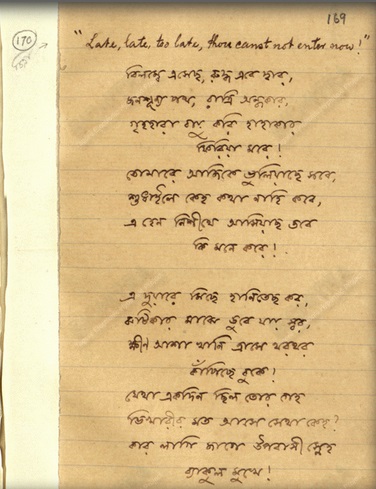 169
170
"Late, late, too late, thou canst not enter now!"
বিলম্বে এসেছ, রুদ্ধ এবে দ্বার,
জনশূন্য পথ, রাত্রি অন্ধকার,
গৃহহারা বায়ু করি হাহাকার
ফিরিয়া মরে!
তোমারে আজিকে ভুলিয়াছে সবে,
শুধাইলে কেহ কথা নাহি কবে,
এ হেন নিশীথে আসিয়াছ তবে
কি মনে করে!
এ দুয়ারে মিছে হানিতেছ কর,
ঝটিকার মাঝে ডুবে যায় স্বর,
ক্ষীণ আশা খানি ত্রাসে থরথর
কাঁপিছে বুকে!
যেথা একদিন ছিল তোর গেহ
ভিখারীর মত আসে সেথা কেহ?
কার লাগি জাগে উপবাসী স্নেহ
ব্যাকুল মুখে!